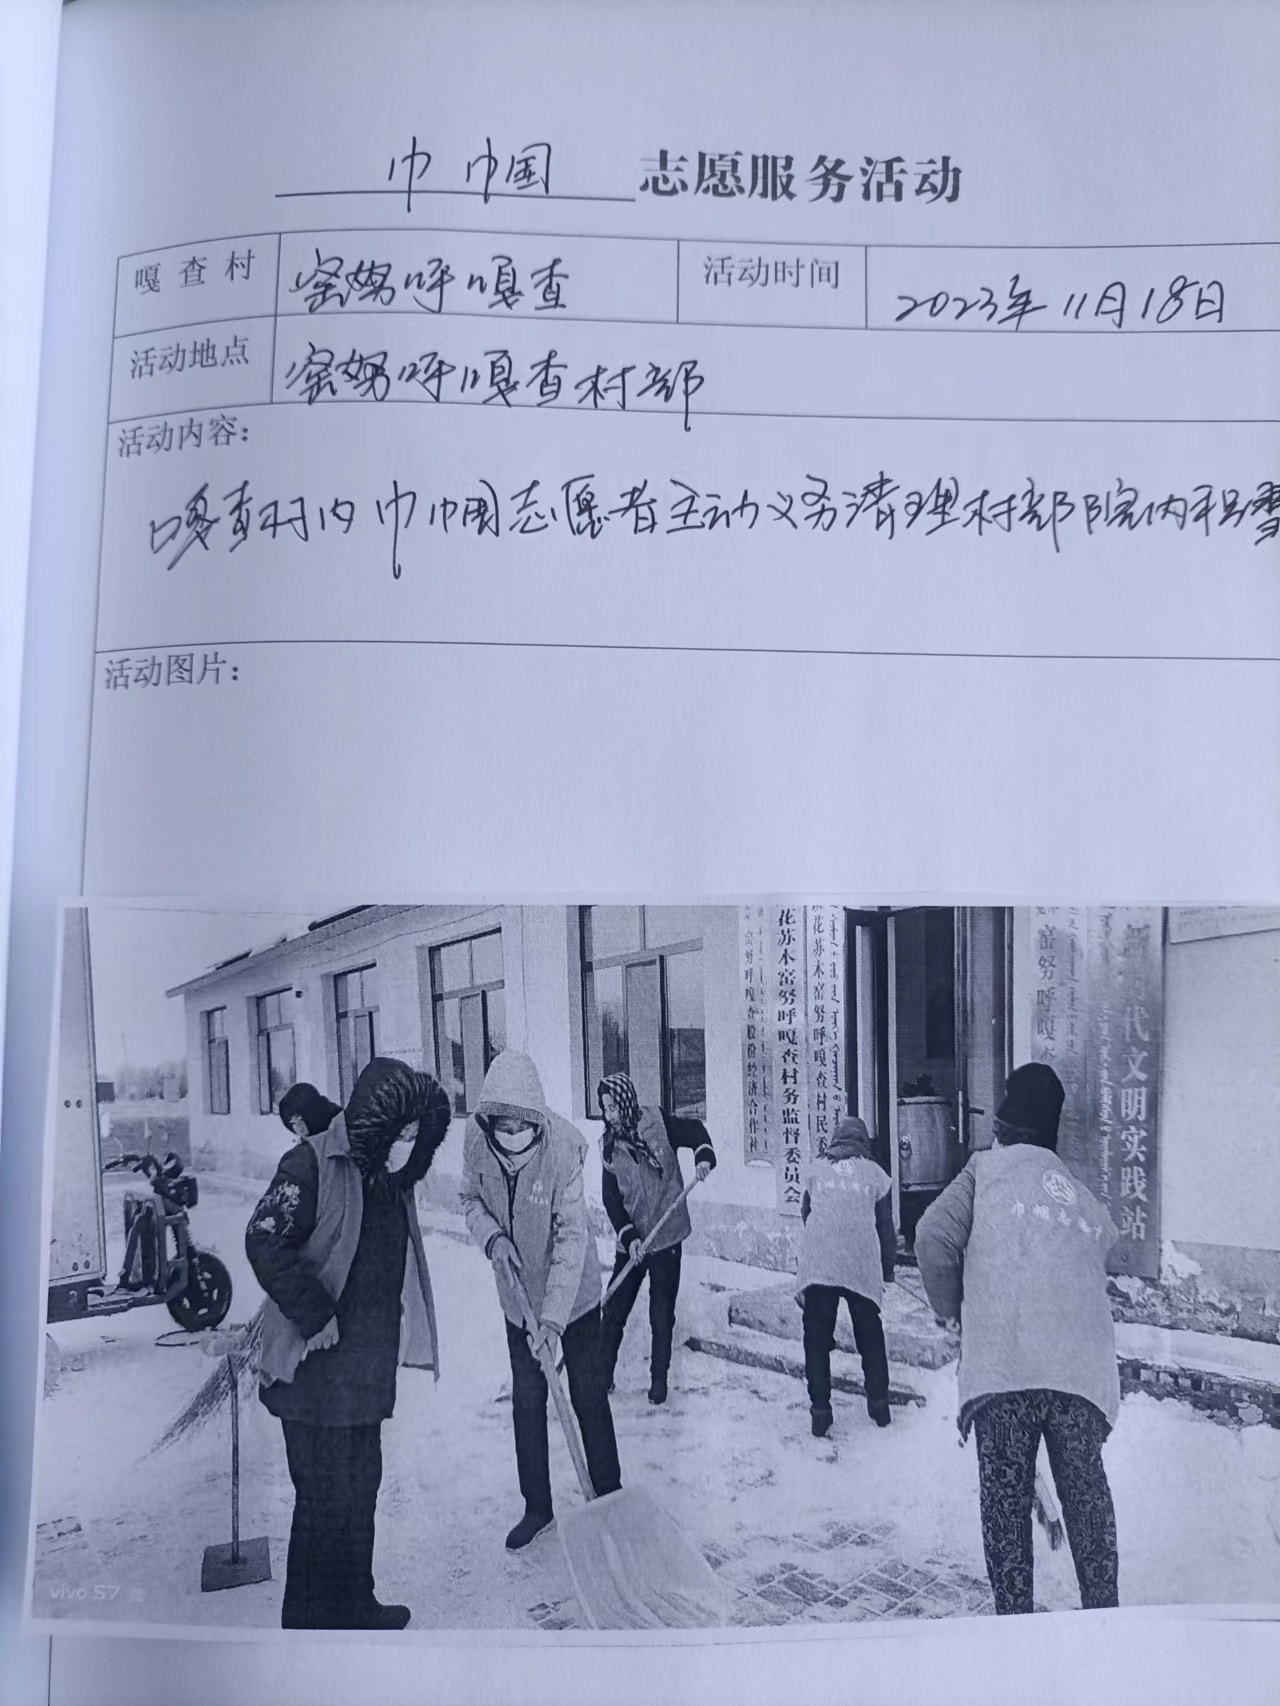 巾巾国 志愿服务活动
嘎查村 窑努呼嘎查 活动时间 2023年11月18日
活动地点 窑努呼嘎查村部
活动内容：
嘎查村内巾巾国志愿者主动义务清理村部院内积雪
活动图片：
窑努呼嘎查股份经济合作社
花苏木窑努呼嘎查村务监督委员会
花苏木窑努呼嘎查村民委
窑努呼嘎查
新时代文明实践站
巾帼志愿者
vivo S7